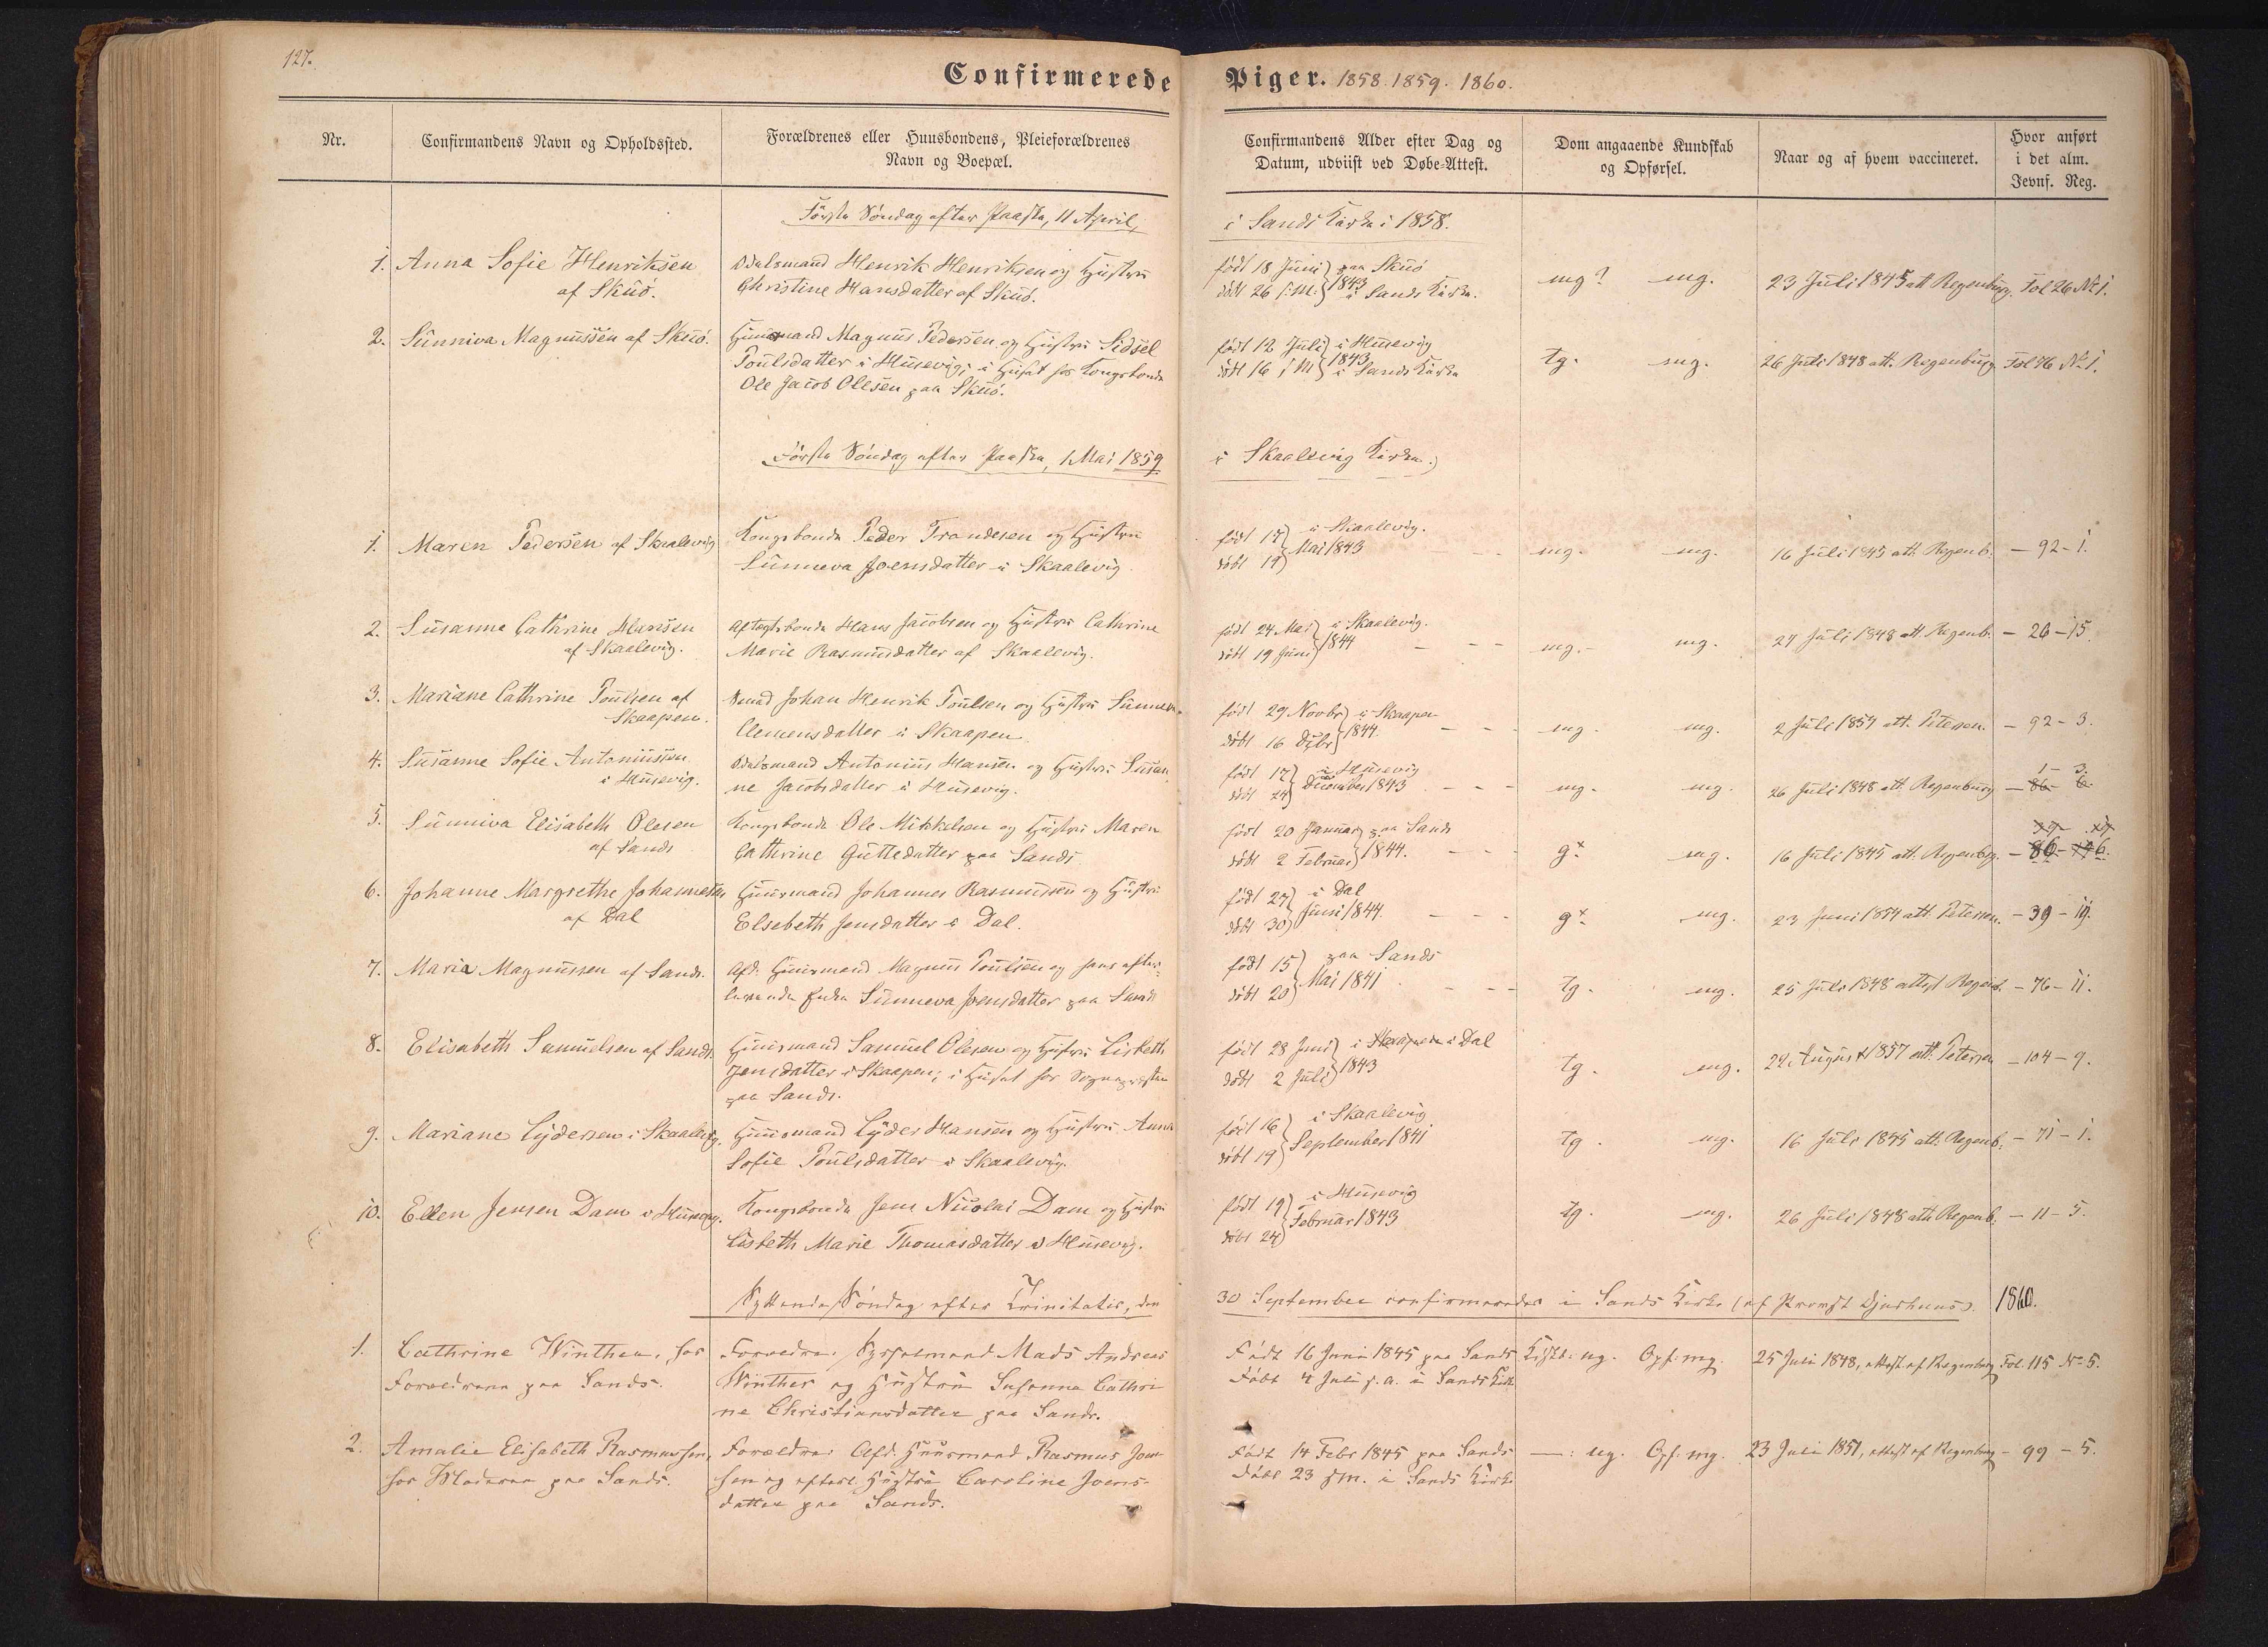 127.
Confirmerede Piger. 1858. 1859. 1860.
Nr.
Confirmandens Navn og Opholdssted.
Forældrenes eller Huusbondens, Pleieforældrenes
Navn og Boepæl.
Confirmandens Alder efter Dag og
Datum, udviist ved Døbe-Attest.
Dom angaaende Kundskab
og Opførsel.
Naar og af hvem vaccineret.
Hvor anført
i det alm.
Jevnf. Reg.
Første Søndag efter Paaske, 11 April, i Sands Kirke i 1858.
1. Anna Sofie Henriksen
af Skuø.
Odelsmand Henrik Henriksen og Hustru
Christine Hansdatter af Skuø.
født 18 Juni } 1843 paa Skuø
døbt 26 s.M. } i Sands Kirke.
mg? mg.
23 Juli 1845 att Regenburg.
Fol 26 No 1.
2. Sunniva Magnussen af Skuø.
Huusmand Magnus Pedersen og Hustru Sidsel
Poulsdatter i Husevig; i Huset hos Kongsbonde
Ole Jacob Olesen paa Skuø.
født 12 Juli } 1843 i Husevig
døbt 16 s M } i Sands Kirke
tg. mg.
26 Juli 1848 att. Regenburg
Fol 76 No 1.
Første Søndag efter Paaske, 1 Mai 1859 i Skaalevig Kirke.
1. Maren Pedersen af Skaalevig
Kongsbonde Peder Trondesen og Hustru
Sunneva Joensdatter i Skaalevig
født 15 } i Skaalevig.
døbt 19 } Mai 1843
mg. mg.
16 Juli 1845 att. Regenb.
- 92 - 1.
2. Susanne Cathrine Hansen
af Skaalevig.
Aftægtsbonde Hans Jacobsen og Hustru Cathrine
Marie Rasmusdatter af Skaalevig.
født 24 Mai } i Skaalevig.
døbt 19 Juni } 1844
mg. mg.
27 Juli 1848 att. Regenb.
- 26 - 15.
3. Mariane Cathrine Poulsen af
Skaapen.
Johan Henrik Poulsen og Hustru Sunneva
Clemensdatter i Skaapen
født 29 Novbr } i Skaapen
døbt 16 Dcbr } 1844.
mg. mg.
2 Juli 1857 att. Petersen.
- 92 - 3.
4. Susanne Sofie Antoniussen
i Husevig.
Odelsmand Antonius Hansen og Hustru Susan-
ne Jacobsdatter i Husevig.
født 17 } i Husevig
døbt 24 } December 1843
mg. mg.
26 Juli 1848 att. Regenburg
1 - 3.
- 86 - 6.
5. Sunniva Elisabeth Olesen
af Sands
Kongsbonde Ole Mikkelsen og Hustru Maren
Cathrine Guttedatter paa Sands
født 20 Januar } paa Sands
døbt 2 Februar } 1844.
g+ mg.
16 Juli 1845 att. Regenbg.
- 86 - 6.
6. Johanne Margrethe Johannesen
af Dal
Huusmand Johannes Rasmussen og Hustru
Elsebeth Jensdatter i Dal.
født 27 } i Dal
døbt 30 } Juni 1844.
g+ mg.
23 Juni 1857 att. Petersen.
- 39 - 19.
7. Maria Magnussen af Sands.
Afd. Huusmand Magnus Poulsen og hans efter-
levende Enke Sunneva Joensdatter paa Sands
født 15 } paa Sands
døbt 20 } Mai 1841
tg. mg.
25 Juli 1848 attest Regenb.
- 76 - 11.
8. Elisabeth Samuelsen af Sands.
Huusmand Samuel Olesen og Hustru Lisbeth
Jensdatter i Skaapen; i Huset hos Sognepræsten
paa Sands.
født 28 Juni } i Skaapen i Dal
døbt 2 Juli } 1843
tg. mg.
22 August 1857 att. Petersen
- 104 - 9.
9. Mariane Lydersen i Skaalevig.
Huusmand Lyder Hansen og Hustru Anna
Sofie Poulsdatter i Skaalevig.
født 16 } i Skaalevig
døbt 19 } September 1841
tg. mg.
16 Juli 1845 att. Regenb.
- 71 - 1.
10. Ellen Jensen Dam i Husevig.
Kongsbonde Jens Nicolai Dam og Hustru
Lisbeth Marie Thomasdatter i Husevig.
født 19 } i Husevig
døbt 24 } Februar 1843
tg. mg.
26 Juli 1848 att. Regenb.
- 11 - 5.
Syttende Søndag efter Trinitatis, den 30 September confirmerede i Sands Kirke (af Provst Djurhuus). 1860.
1. Cathrine Winther, hos
Forældrene paa Sands.
Forældre: Sysselmand Mads Andreas
Winther og Hustru Susanne Cathri-
ne Christiansdatter paa Sands.
Født 16 Juni 1845 paa Sands
Døbt 4 Juli s.a. i Sands Kirke
Kdskb: ug. Opf: mg.
25 Juli 1848, attest af Regenburg
Fol. 115 No 5.
2. Amalie Elisabeth Rasmussen,
hos Moderen paa Sands.
Forældre: Afd. Huusmand Rasmus Joen-
sen og efterl. Hustru Caroline Joens-
datter paa Sands.
Født 14 Febr 1845 paa Sands
Døbt 23 s.M. i Sands Kirke
—: ug. Opf: mg.
23 Juli 1851, attest af Regenburg
- 99 - 5.